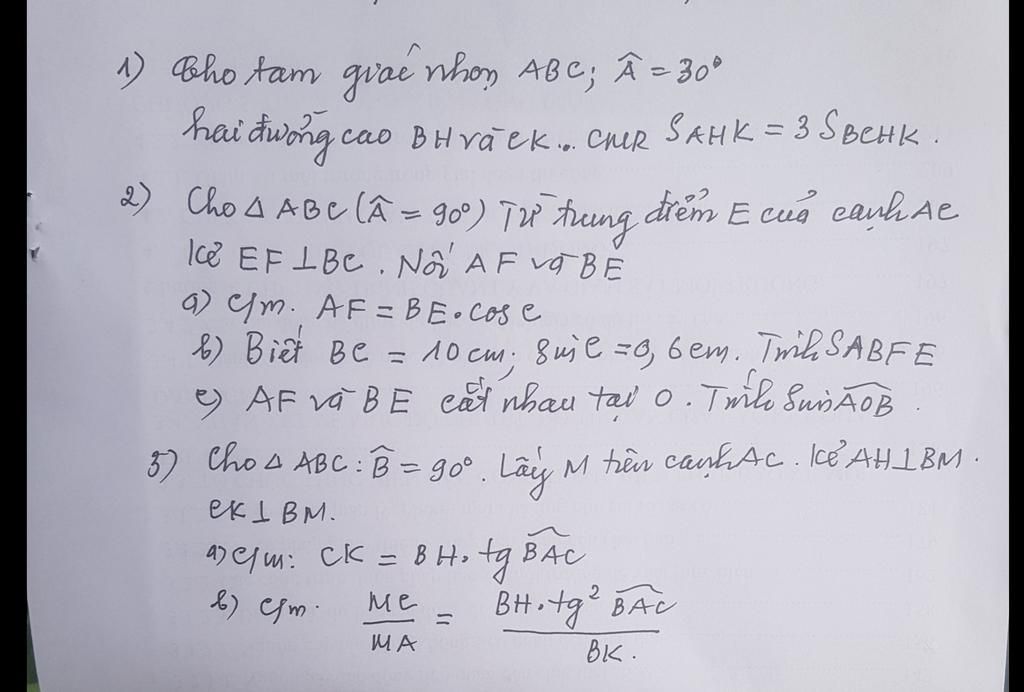 1) Cho tam giác nhọn ABC; Â = 30°
hai đường cao BH và CK. CMR S AHK = 3 S BCHK.
2) Cho Δ ABC (Â = 90°) Từ trung điểm E của cạnh AC
kẻ EF ⊥ BC. Nối AF và BE
a) C/m. AF = BE.cos C
b) Biết BC = 10cm; sin C = 0,6cm. Tính SABFE
c) AF và BE cắt nhau tại O. Tính sin AÔB.
3) Cho Δ ABC: B̂ = 90°. Lấy M trên cạnh AC. Kẻ AH ⊥ BM.
CK ⊥ BM.
a) C/m: CK = BH. tg BÂC
b) C/m. MC/MA = BH.tg² BÂC / BK.